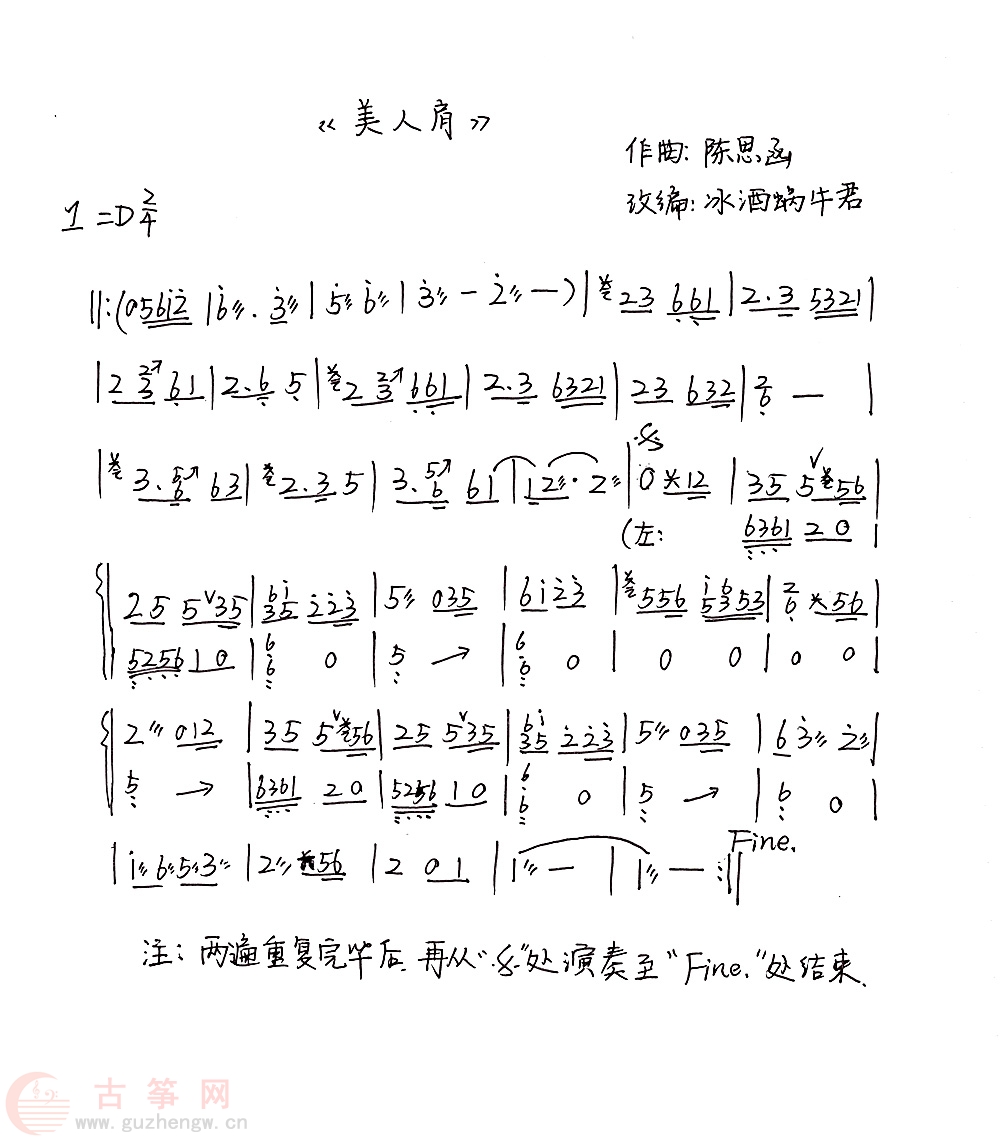 《美人肩》
作曲: 陈思函
改编: 冰酒蜗牛君
1=D 2/4
||:(0561̇2̇ |6̇⫽. 3̇⫽ |5̇⫽ 6̇⫽ | 3̇⫽ — 2̇⫽ —)| 23 661 | 2.3 5321 |
| 2 23↗ 61 | 2.6 5 | 2 23↗ 661 | 2.3 6321 | 23 632 | 26 — |
| 3. 56↗ 63 | 2.3 5 | 3. 56↗ 61 | 12⫽. 2⫽ | 0 *12 | 35 5ⱽ56 |
(左: 6361 2 0 |
25 5ⱽ35 | 6i̇35 2̇2̇3̇ | 5⫽ 035 | 6i̇2̇3̇ | 556 i̇65353 | 26 *56 |
5256 1 0 | 66 0 | 5 → | 66 0 | 0 0 | 0 0 |
2⫽ 012 | 35 5ⱽ56 | 25 5ⱽ35 | 6i̇35 2̇2̇3̇ | 5⫽ 035 | 6 3̇⫽ 2̇⫽ |
5 → | 6361 2 0 | 5256 1 0 | 66 0 | 5 → | 6 0 |
Fine.
| i̇⫽ 6⫽ 5⫽ 3⫽ | 2⫽ 56 | 2 0 1 | 1⫽ — | 1⫽ — :||
注: 两遍重复完毕后, 再从“𝄋”处演奏至“Fine.”处结束.
古筝网
www.guzhengw.cn